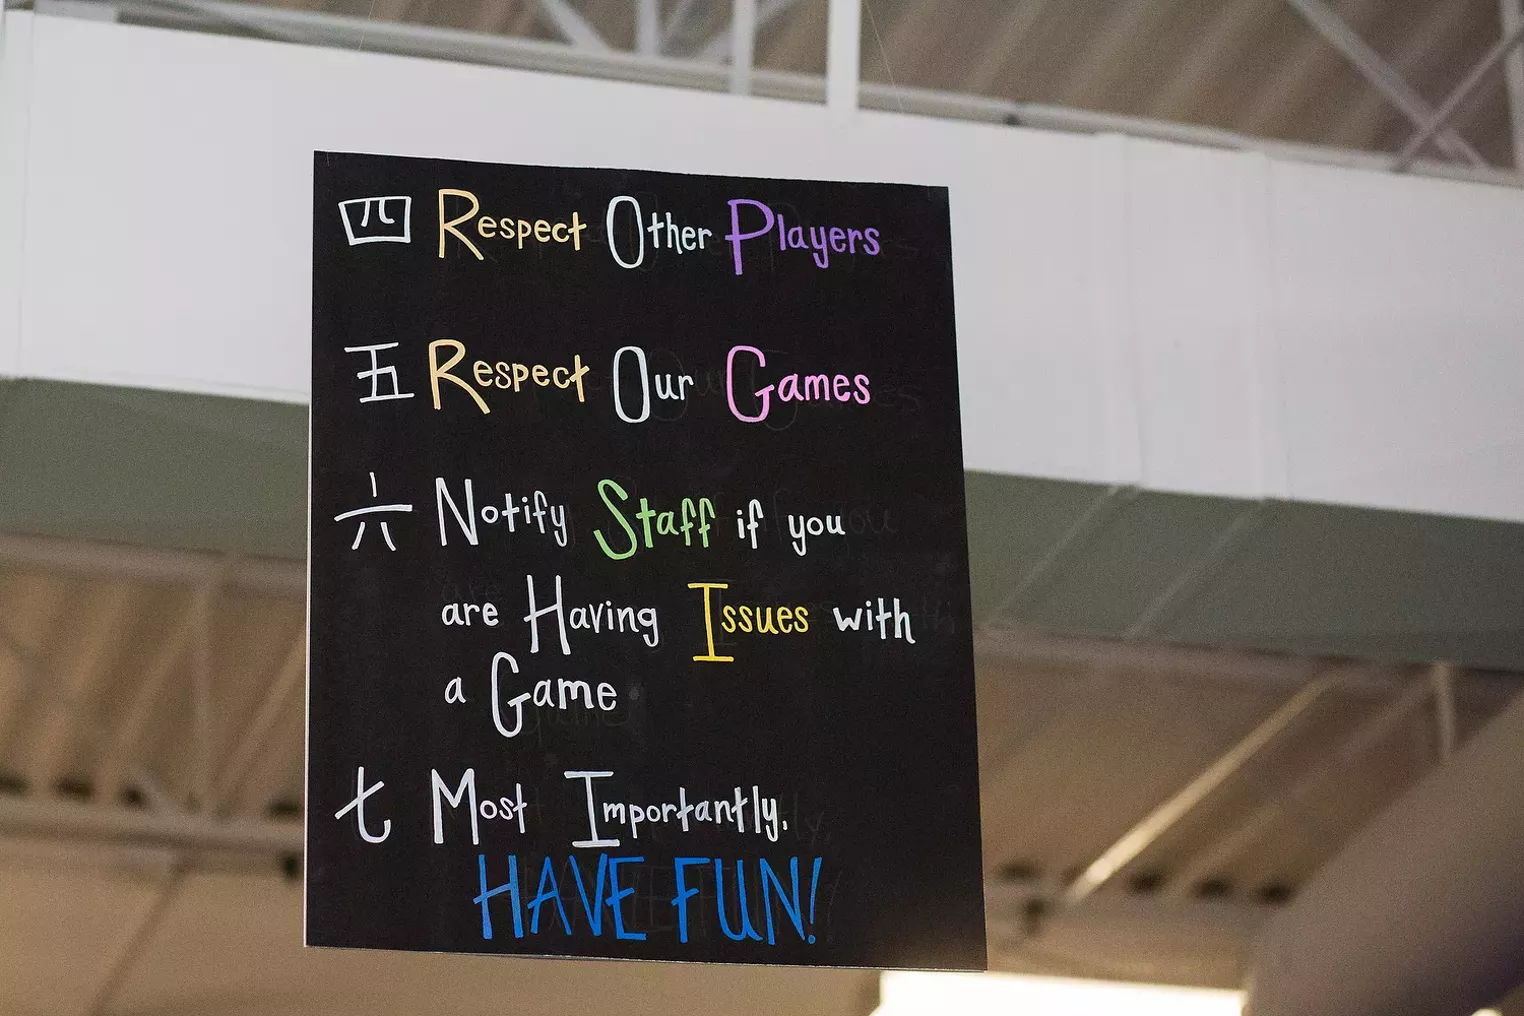 四 Respect Other Players
五 Respect Our Games
六 Notify Staff if you
are Having Issues with
a Game
七 Most Importantly,
HAVE FUN!